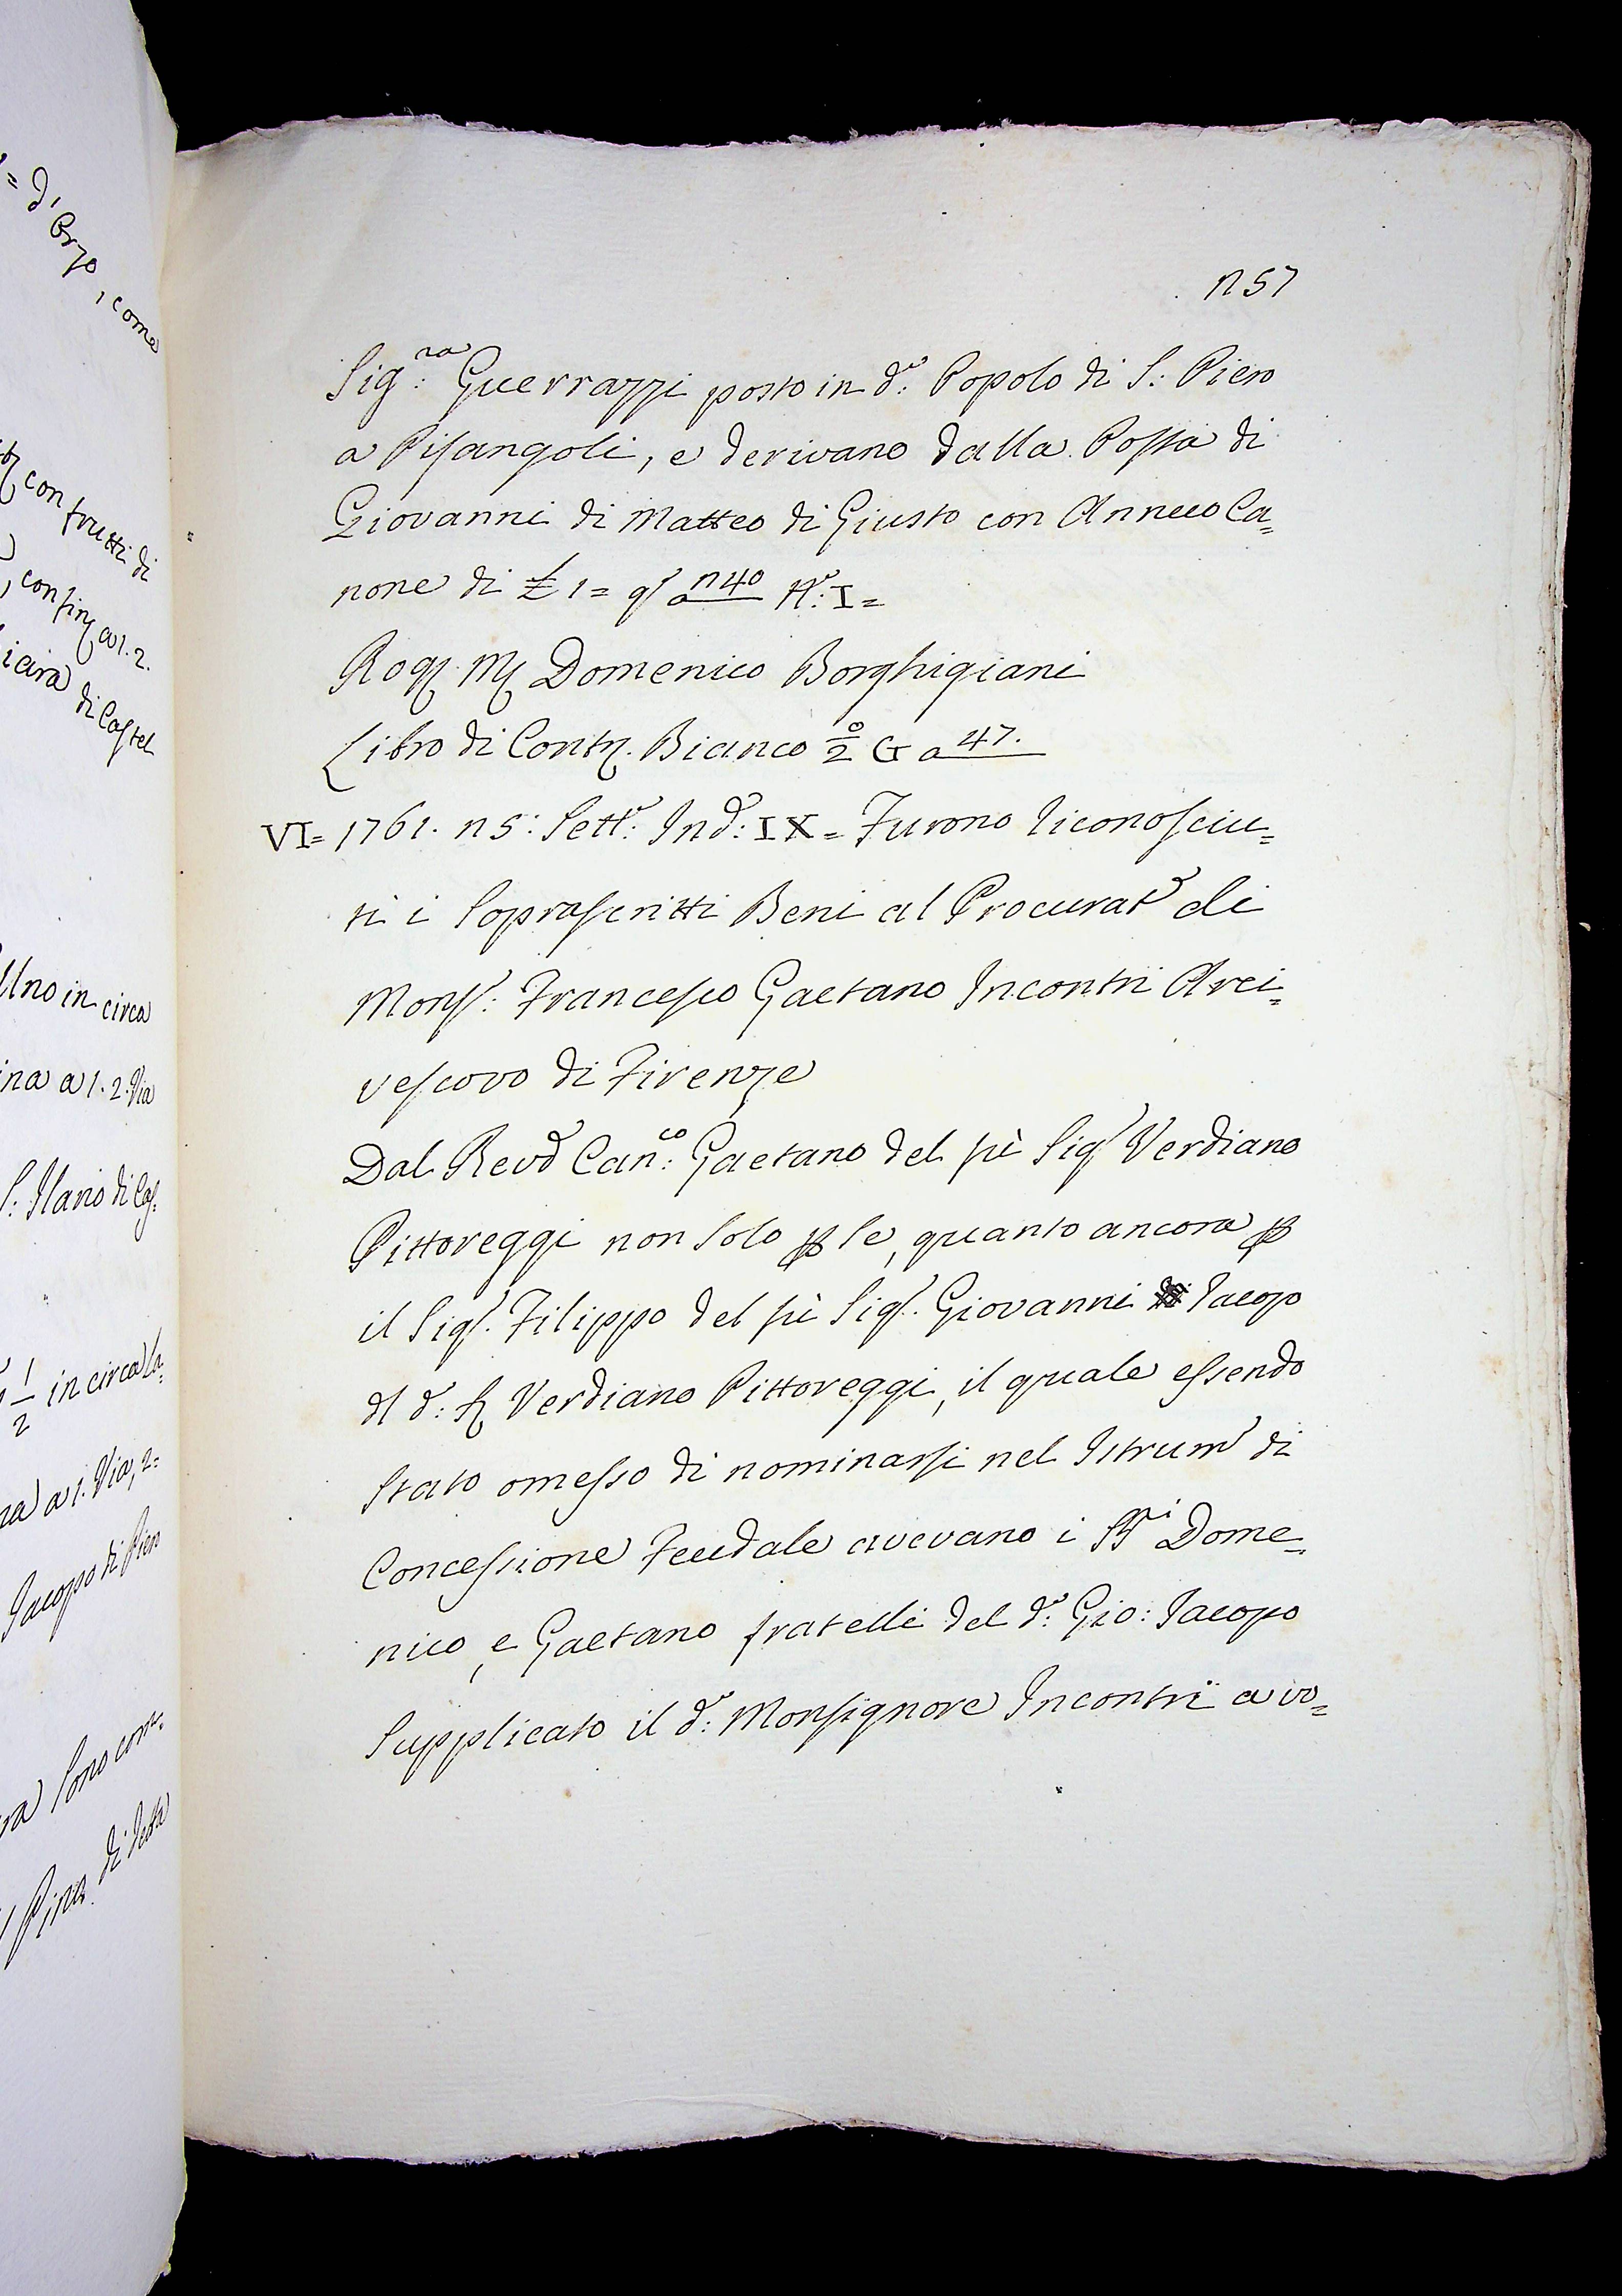 n 57
Sig:ra Guerrazzi posto in d:o Popolo di S: Piero
a Pisangoli, e derivano dalla Possa di
Giovanni di Matteo di Giusto con Annuo Ca=
none di £ 1= q a n 40 N:o I=
Rog Mſ Domenico Borghigiani
Libro di Contr. Bianco 2o G a 47.
VI= 1761. n 5: Sett:e Ind: IX= Furono riconosciu=
ti i Soprascritti Beni al Procurat di
Mons: Francesco Gaetano Incontri Arci=
vescovo di Firenze
Dal Revd Can:co Gaetano del fù Sig Verdiano
Pittoreggi non solo p se, quanto ancora p
il Sig. Filippo del fù Sig. Giovanni Jacopo
dl d: Verdiano Pittoreggi, il quale essendo
Stato omesso di nominarsi nel Istrum di
Concessione Feudale avevano i SSri Dome=
nico, e Gaetano fratelli del d:o Gio: Jacopo
Supplicato il d:o Monsignore Incontri a vo=
come
con frutti di
confin a 1. 2.
di Castel
Uno in circa
ina a 1. 2. Via
S: Ilario di Cas=
1/2 in circa la=
a 1. Via, 2=
Jacopo di Pier
Sono con=